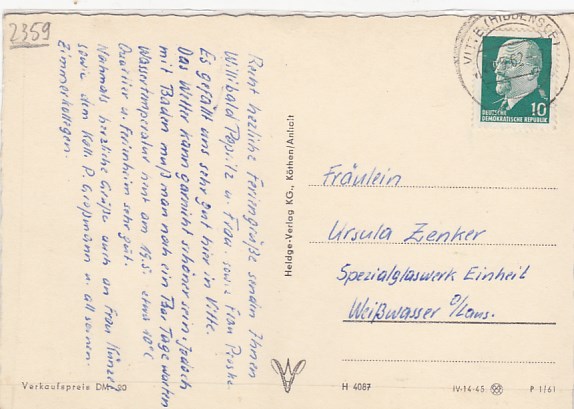 2359
Recht herzliche Feriengrüße senden Ihnen
Willibald u. Frau. sowie Frau
Es gefällt uns sehr gut hier in Vitte.
Das Wetter kann garnicht schöner sein. Jedoch
mit Baden muß man noch ein Paar Tage warten
Wassertemperatur nur am 19.5. etwa 10°C
Quartier u. Ferienheim sehr gut.
Nahmals herzliche Grüße auch an Frau Künzel
sowie dem Koll. P. Großmann u. all seinen
Zimmerkollegen.
Verkaufspreis DM -20
Heldge-Verlag KG., Köthen/Anhalt
VITTE (HIDDENSEE)
DEUTSCHE 10
DEMOKRATISCHE REPUBLIK
Fräulein
Ursula Zenker
Spezialglaswerk Einheit
Weißwasser O/Laus.
H 4087
IV-14-45
P 1/61